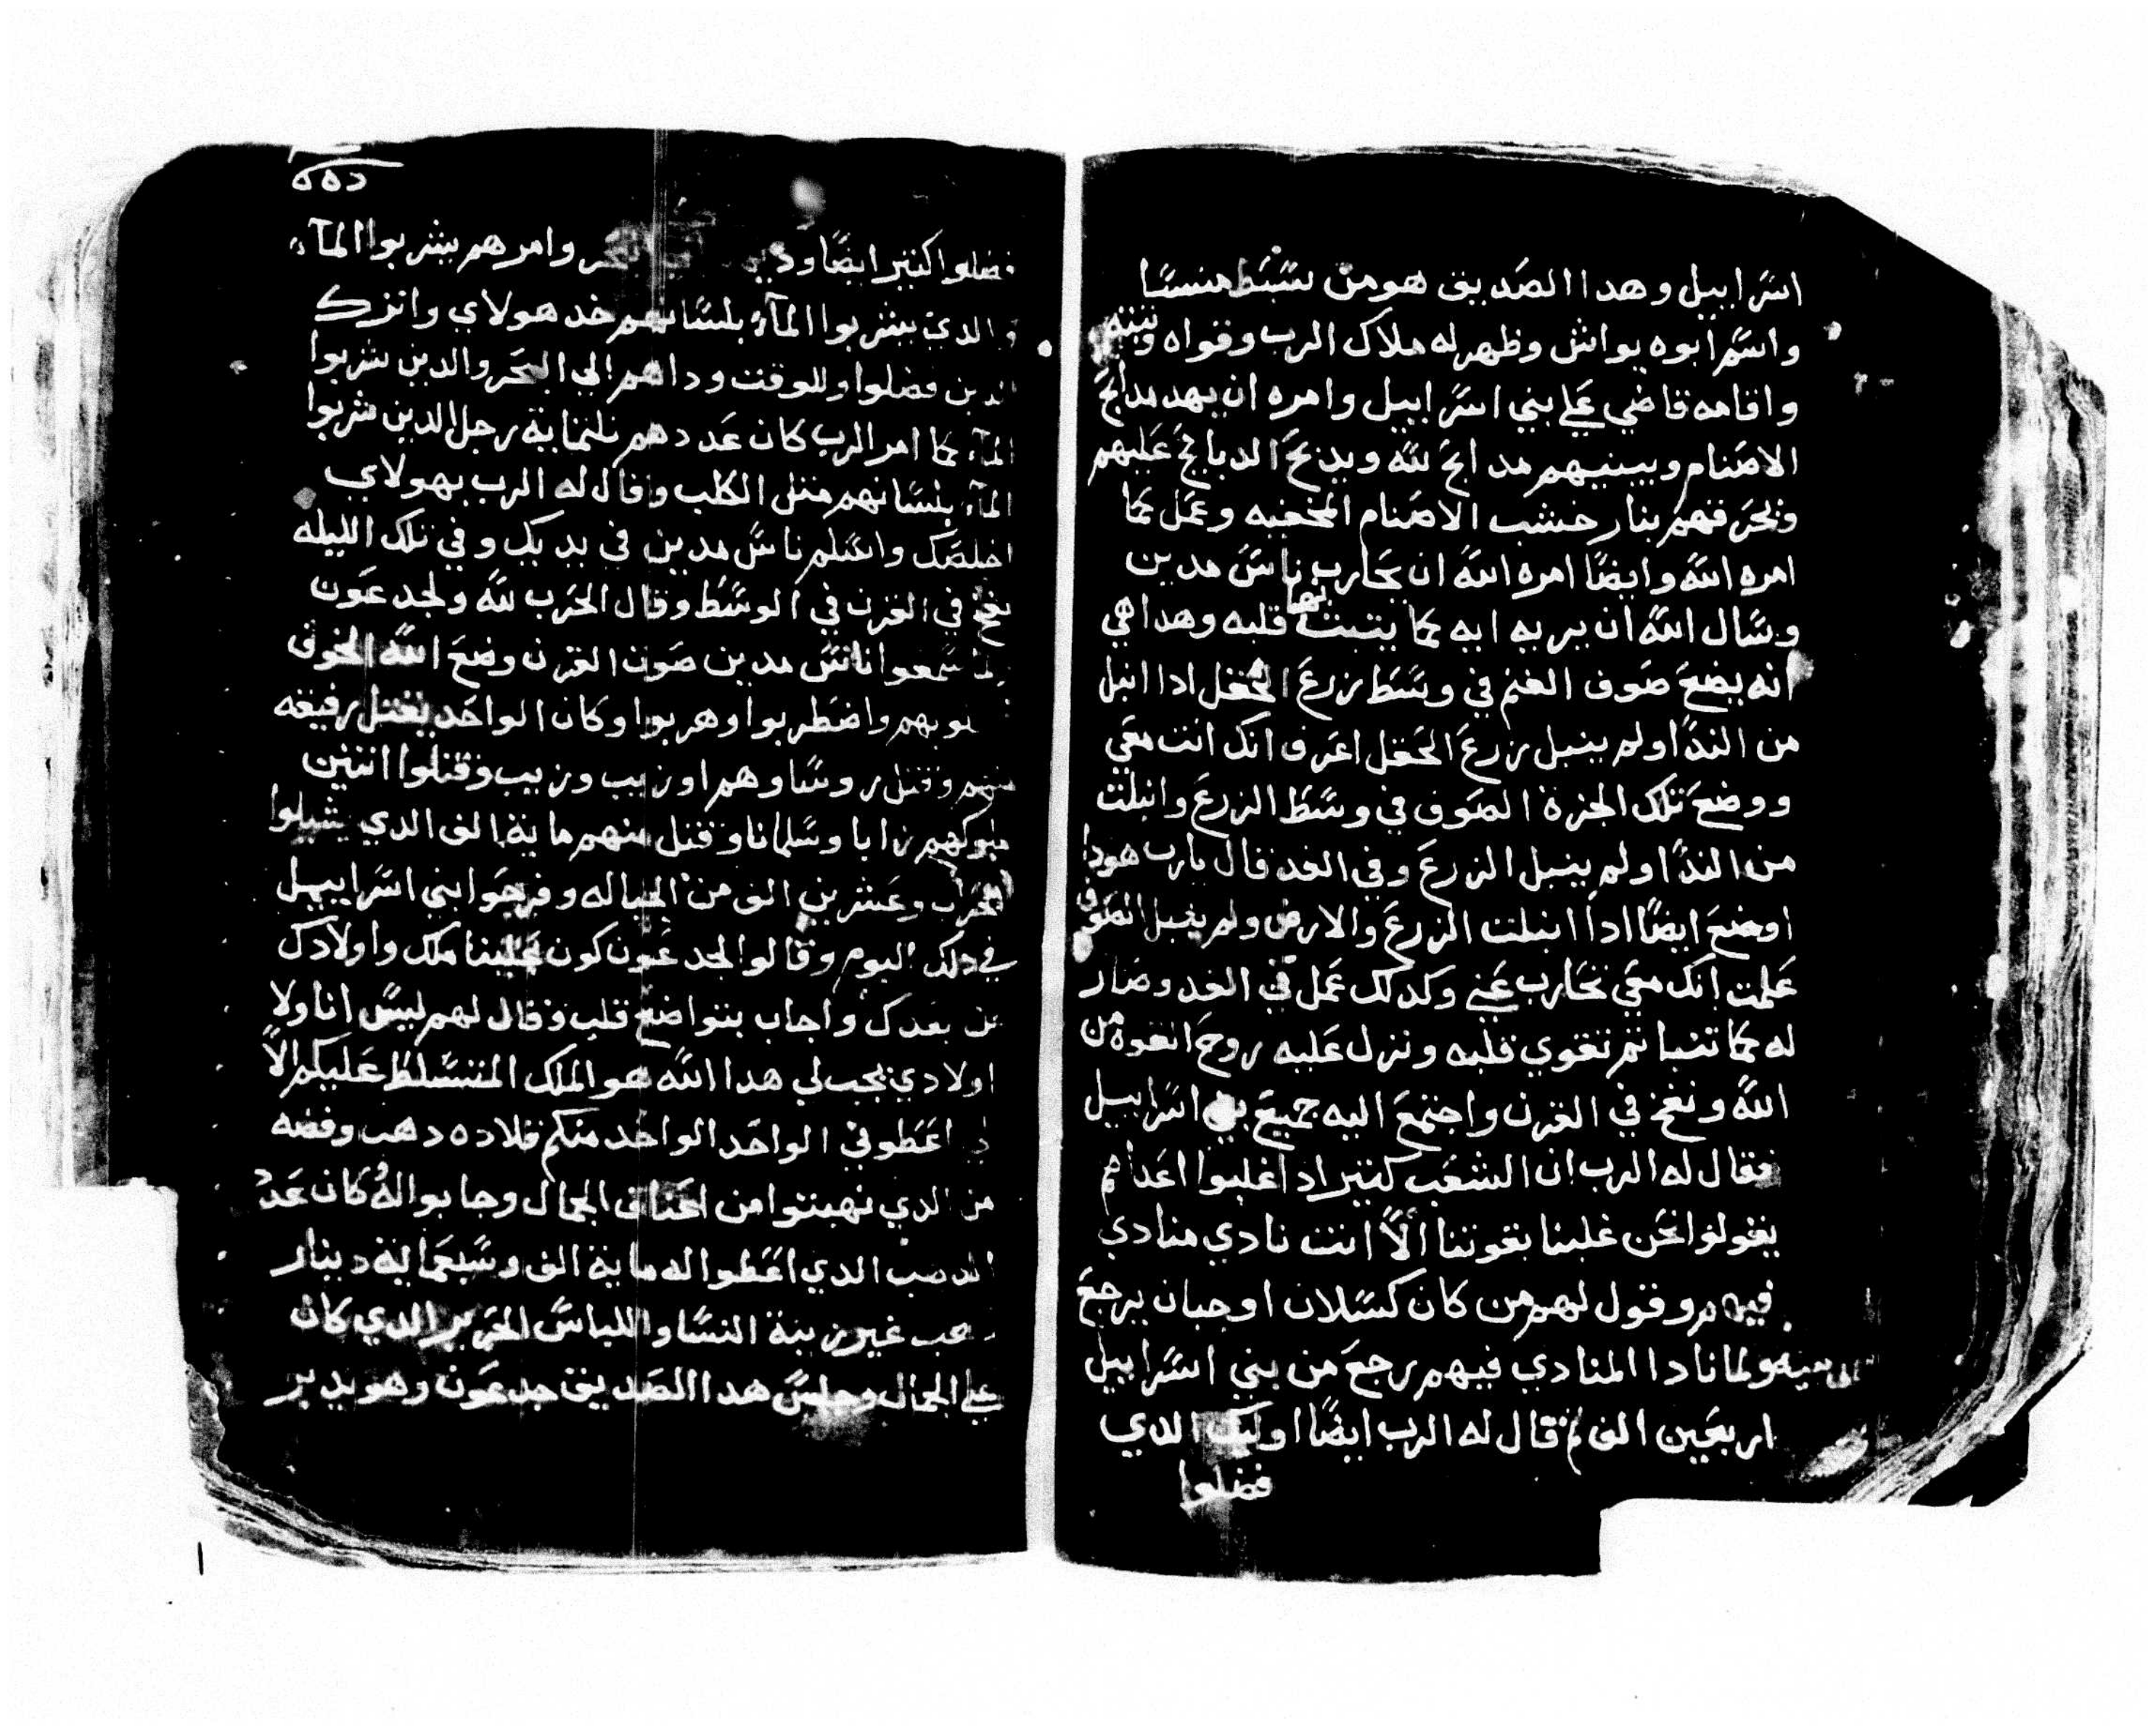 اسراييل وهدا الصديق هو من سبط منسا
واسم ابوه يواش وظهر له ملاك الرب وقواه وثبته
واقامه قاضي علي بني اسراييل وامره ان يهد مدابح
الاصنام ويبنيهم مدابح لله ويدبح الدبايح عليهم
وبحرقهم بنار خشب الاصنام المخفيه وعمل كما
امره الله وايضًا امره الله ان يحارب ناس مدين
وسال الله ان يريه ايه كما يتبت بها قلبه وهدا هي
انه يضع صوف الغنم في وسط زرع الحقل ادا انبل
من الندا ولم ينبل زرع الحقل اعرف انك انت معي
ووضع تلك الجزة الصوف في وسط الزرع وانبلت
من الندا ولم ينبل الزرع وفي الغد قال يارب هودا
اوضع ايضًا ادا انبلت الزرع والارض ولم ينبل الصوف
علمت انك معي تحارب عني وكدلك عمل في الغد وصار
له كما تنبا تم تقوي قلبه ونزل عليه روح القوة من
الله ونفخ في القرن واجتمع اليه جميع بني اسراييل
فقال له الرب ان الشعب كتير ادا غلبوا اعداهم
يقولوا نحن غلبنا بقوتنا الاّ انت نادي منادي
فيهم وقول لهم من كان كسلان او جبان يرجع
الى بيته ولما نادا المنادي فيهم رجع من بني اسراييل
اربعين الف تم قال له الرب ايضًا اوليك الدي
فضلوا
فضلوا كتير ايضًا وامرهم يشربوا المآء
والدي يشربوا المآء بلسانهم خد هولاي واترك
الدين فضلوا وللوقت وداهم الي البحر والدين شربوا
المآء كما امر الرب كان عددهم تلتماية رجل الدين شربوا
المآء بلسانهم متل الكلب وقال له الرب بهولاي
اخلصك واسلم ناس مدين في يديك وفي تلك الليله
نفخ في القرن في الوسط وقال الحرب لله ولجدعون
لما سمعوا اناس مدين صوت القرن وضع الله الخوف
واضطربوا وهربوا وكان الواحد يقتل رفيقه
منهم وقتل روساوهم اوزيب وزيب وقتلوا اتنين
ملوكهم زابا وسلمانا وقتل منهم ماية الف الدي يشيلوا
الحراب وعشرين الف من الخياله وفرحوا بني اسراييل
في دلك اليوم وقالوا لجدعون كون علينا ملك واولادك
من بعدك واجاب بتواضع قلب وقال لهم ليس انا ولا
اولادي يجب لي هدا الله هو الملك المتسلط عليكم الاّ
اعطوني الواحد الواحد منكم قلاده دهب وفضه
من الدي نهبتوا من اعناق الجمال وجابوا له كان عدد
الدهب الدي اعطوا له ماية الف وسبعماية دينار
دهب غير زينة النسا واللباس الحرير الدي كان
علي الجمال وجلس هدا الصديق جدعون وهو يدبر